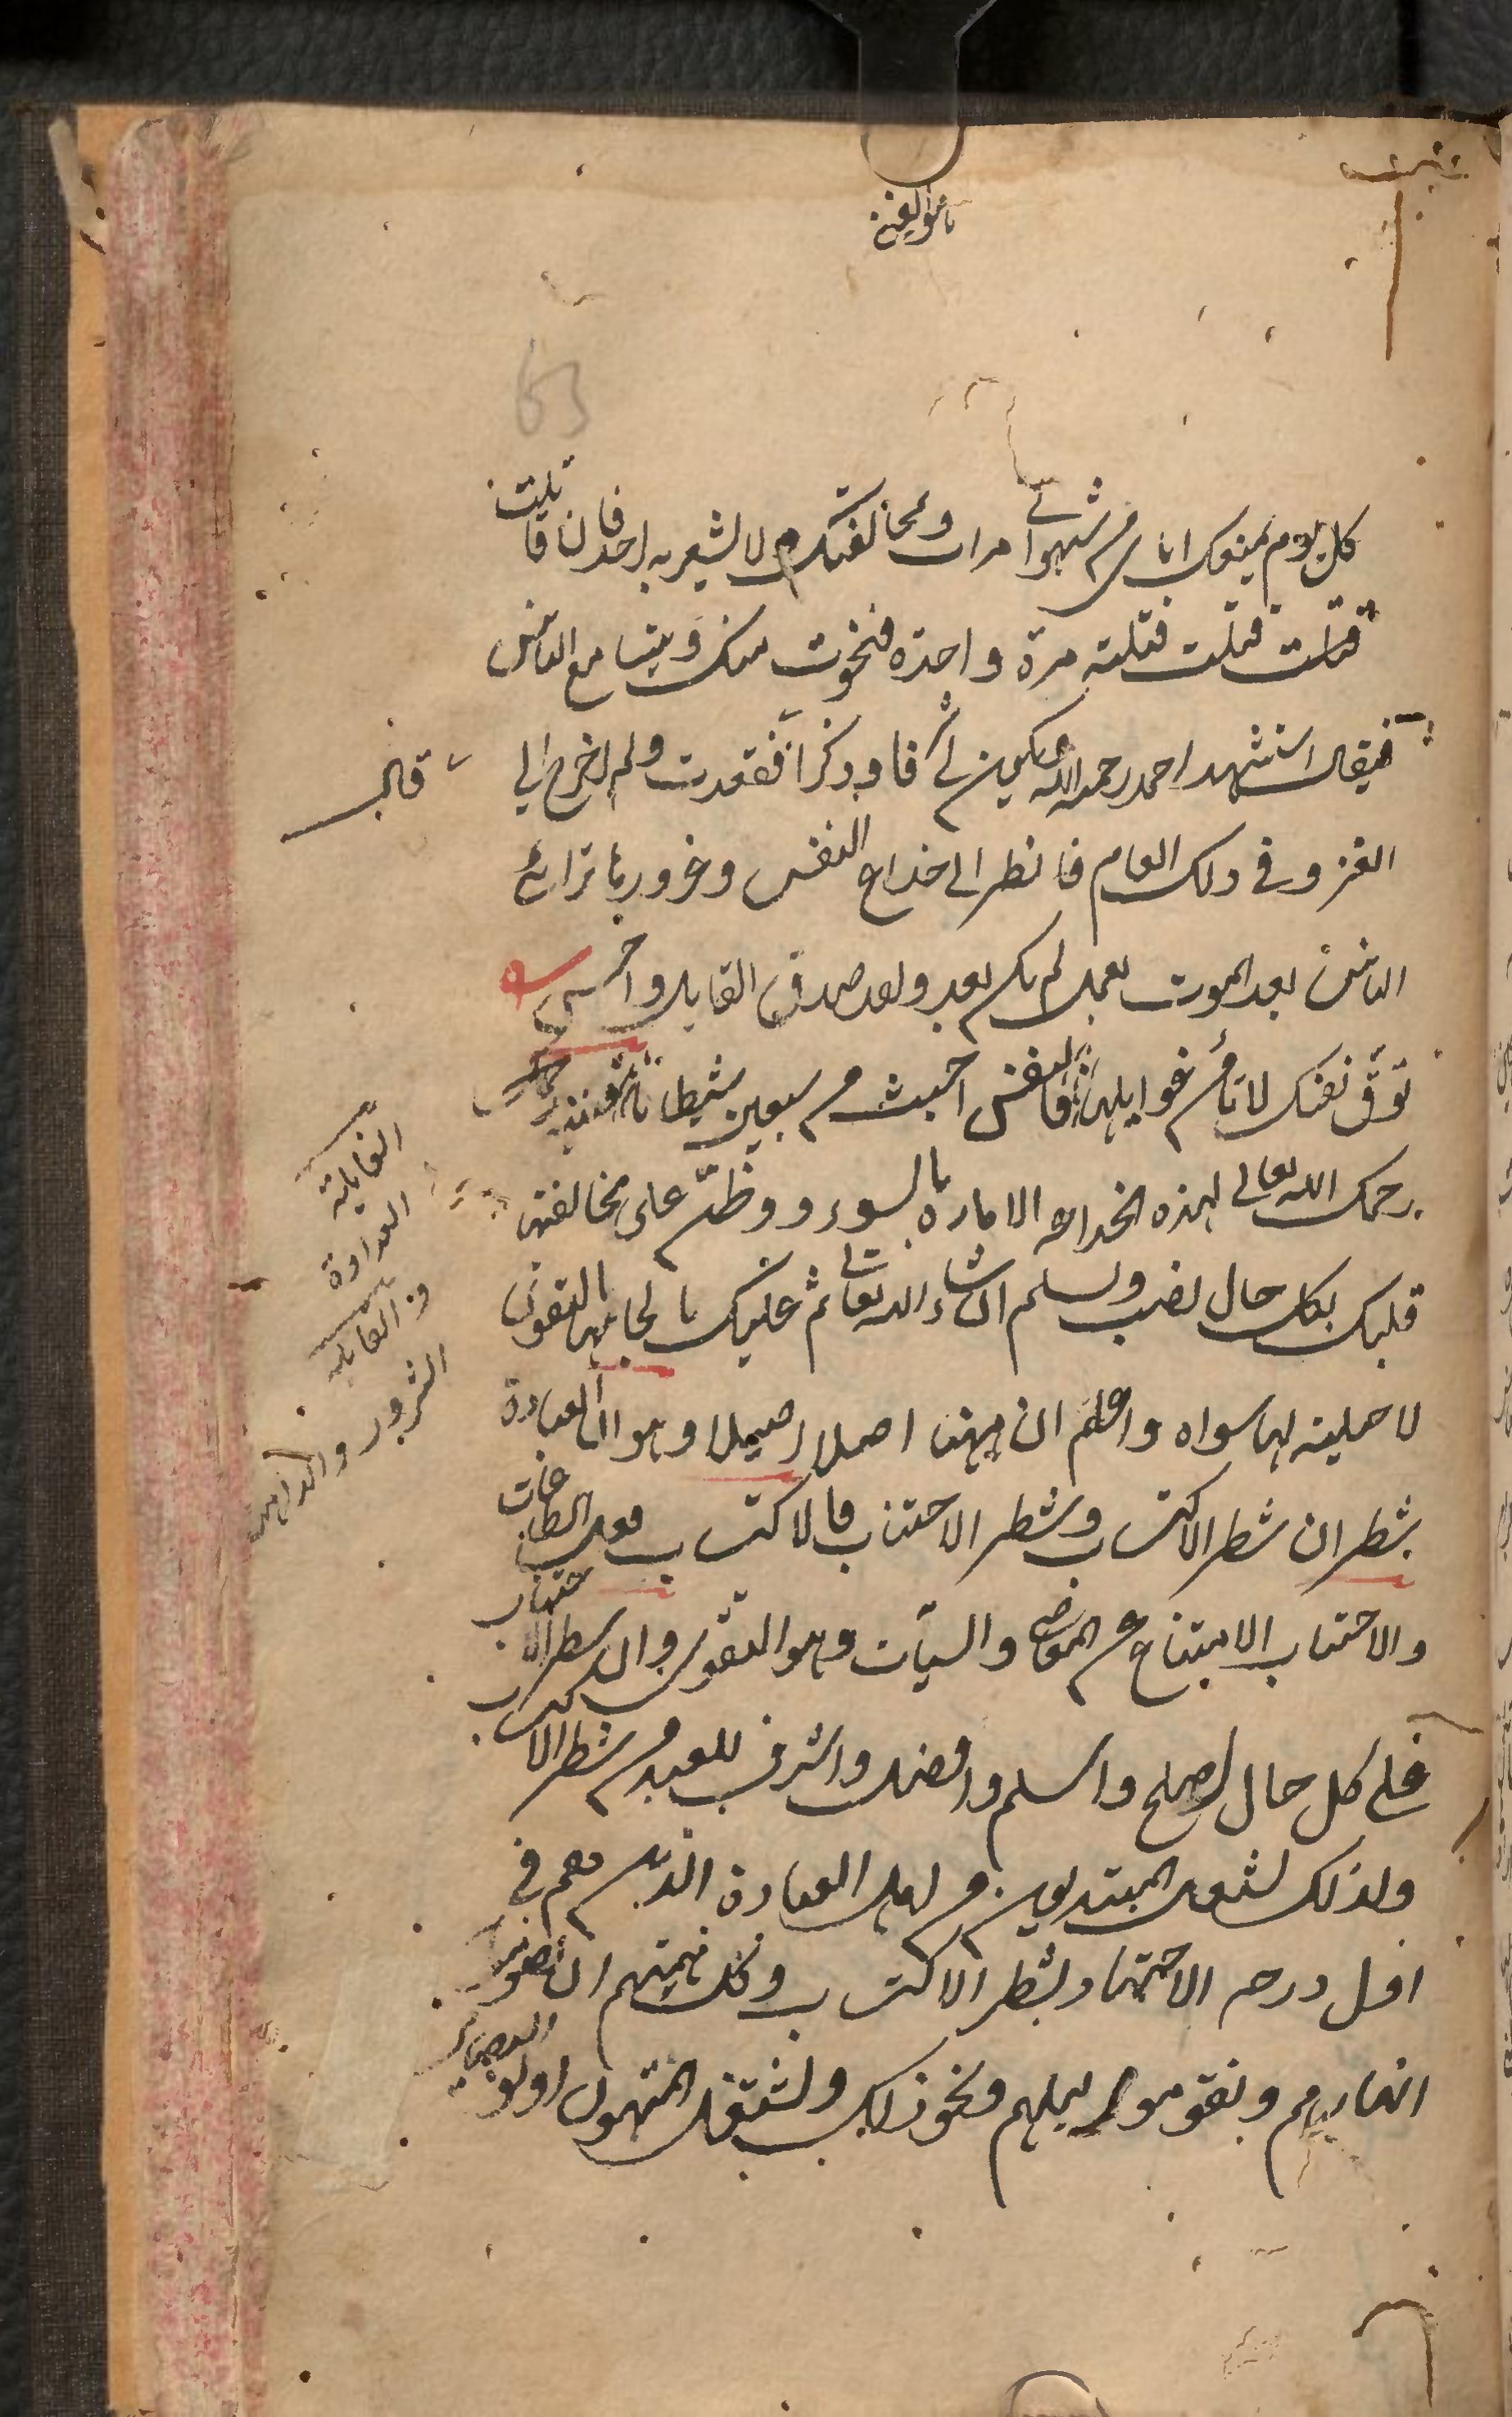 كل يوم بمنعك اياي من شهواتي مرات ومخالفتك ولا يشعر به احد فان قاتلت
قتلت قتلت قتلة مرة واحدة فنجوت منك ويتسامع الناس
فيقال استشهد احمد رحمه الله ويكون لي شرفا وذكرا فقعدت ولم اخرج الى
قال
الغزو في ذلك العام فانظر الى خداع النفس وغرورها ترائي
الناس بعد الموت بعمل لم يكن بعد ولقد صدق القايل واحسن
توق نفسك لا تأمن غوايلها فالنفس اخبث من سبعين شيطانا فتنبه
رحمك الله تعالى لهذه الخداعة الامارة بالسوء ووطن على مخالفتها
قلبك بكل حال تصب وتسلم ان شاء الله تعالى ثم عليك بالجامها بالتقوى
لا حيلة لها سواه واعلم ان ههنا اصلا اصيلا وهو ان العبادة
شطران شطر الاكتساب وشطر الاجتناب فالاكتساب فعل الطاعات
والاجتناب الامتناع عن المعاصي والسيآت وهو التقوى وان شطر الاجتناب
على كل حال اصلح واسلم وافضل واشرف للعبد من شطر الاكتساب
ولذلك اشتغل المبتديون من اهل العبادة الذين هم في
اول درجة الاجتهاد بشطر الاكتساب وكل همتهم ان يصوموا
انهارهم ويقوموا ليلهم ونحو ذلك واشتغل المنتهون اولو البصاير
الغايلة
العداوة
والغايلة
الشرور والدواهى
63